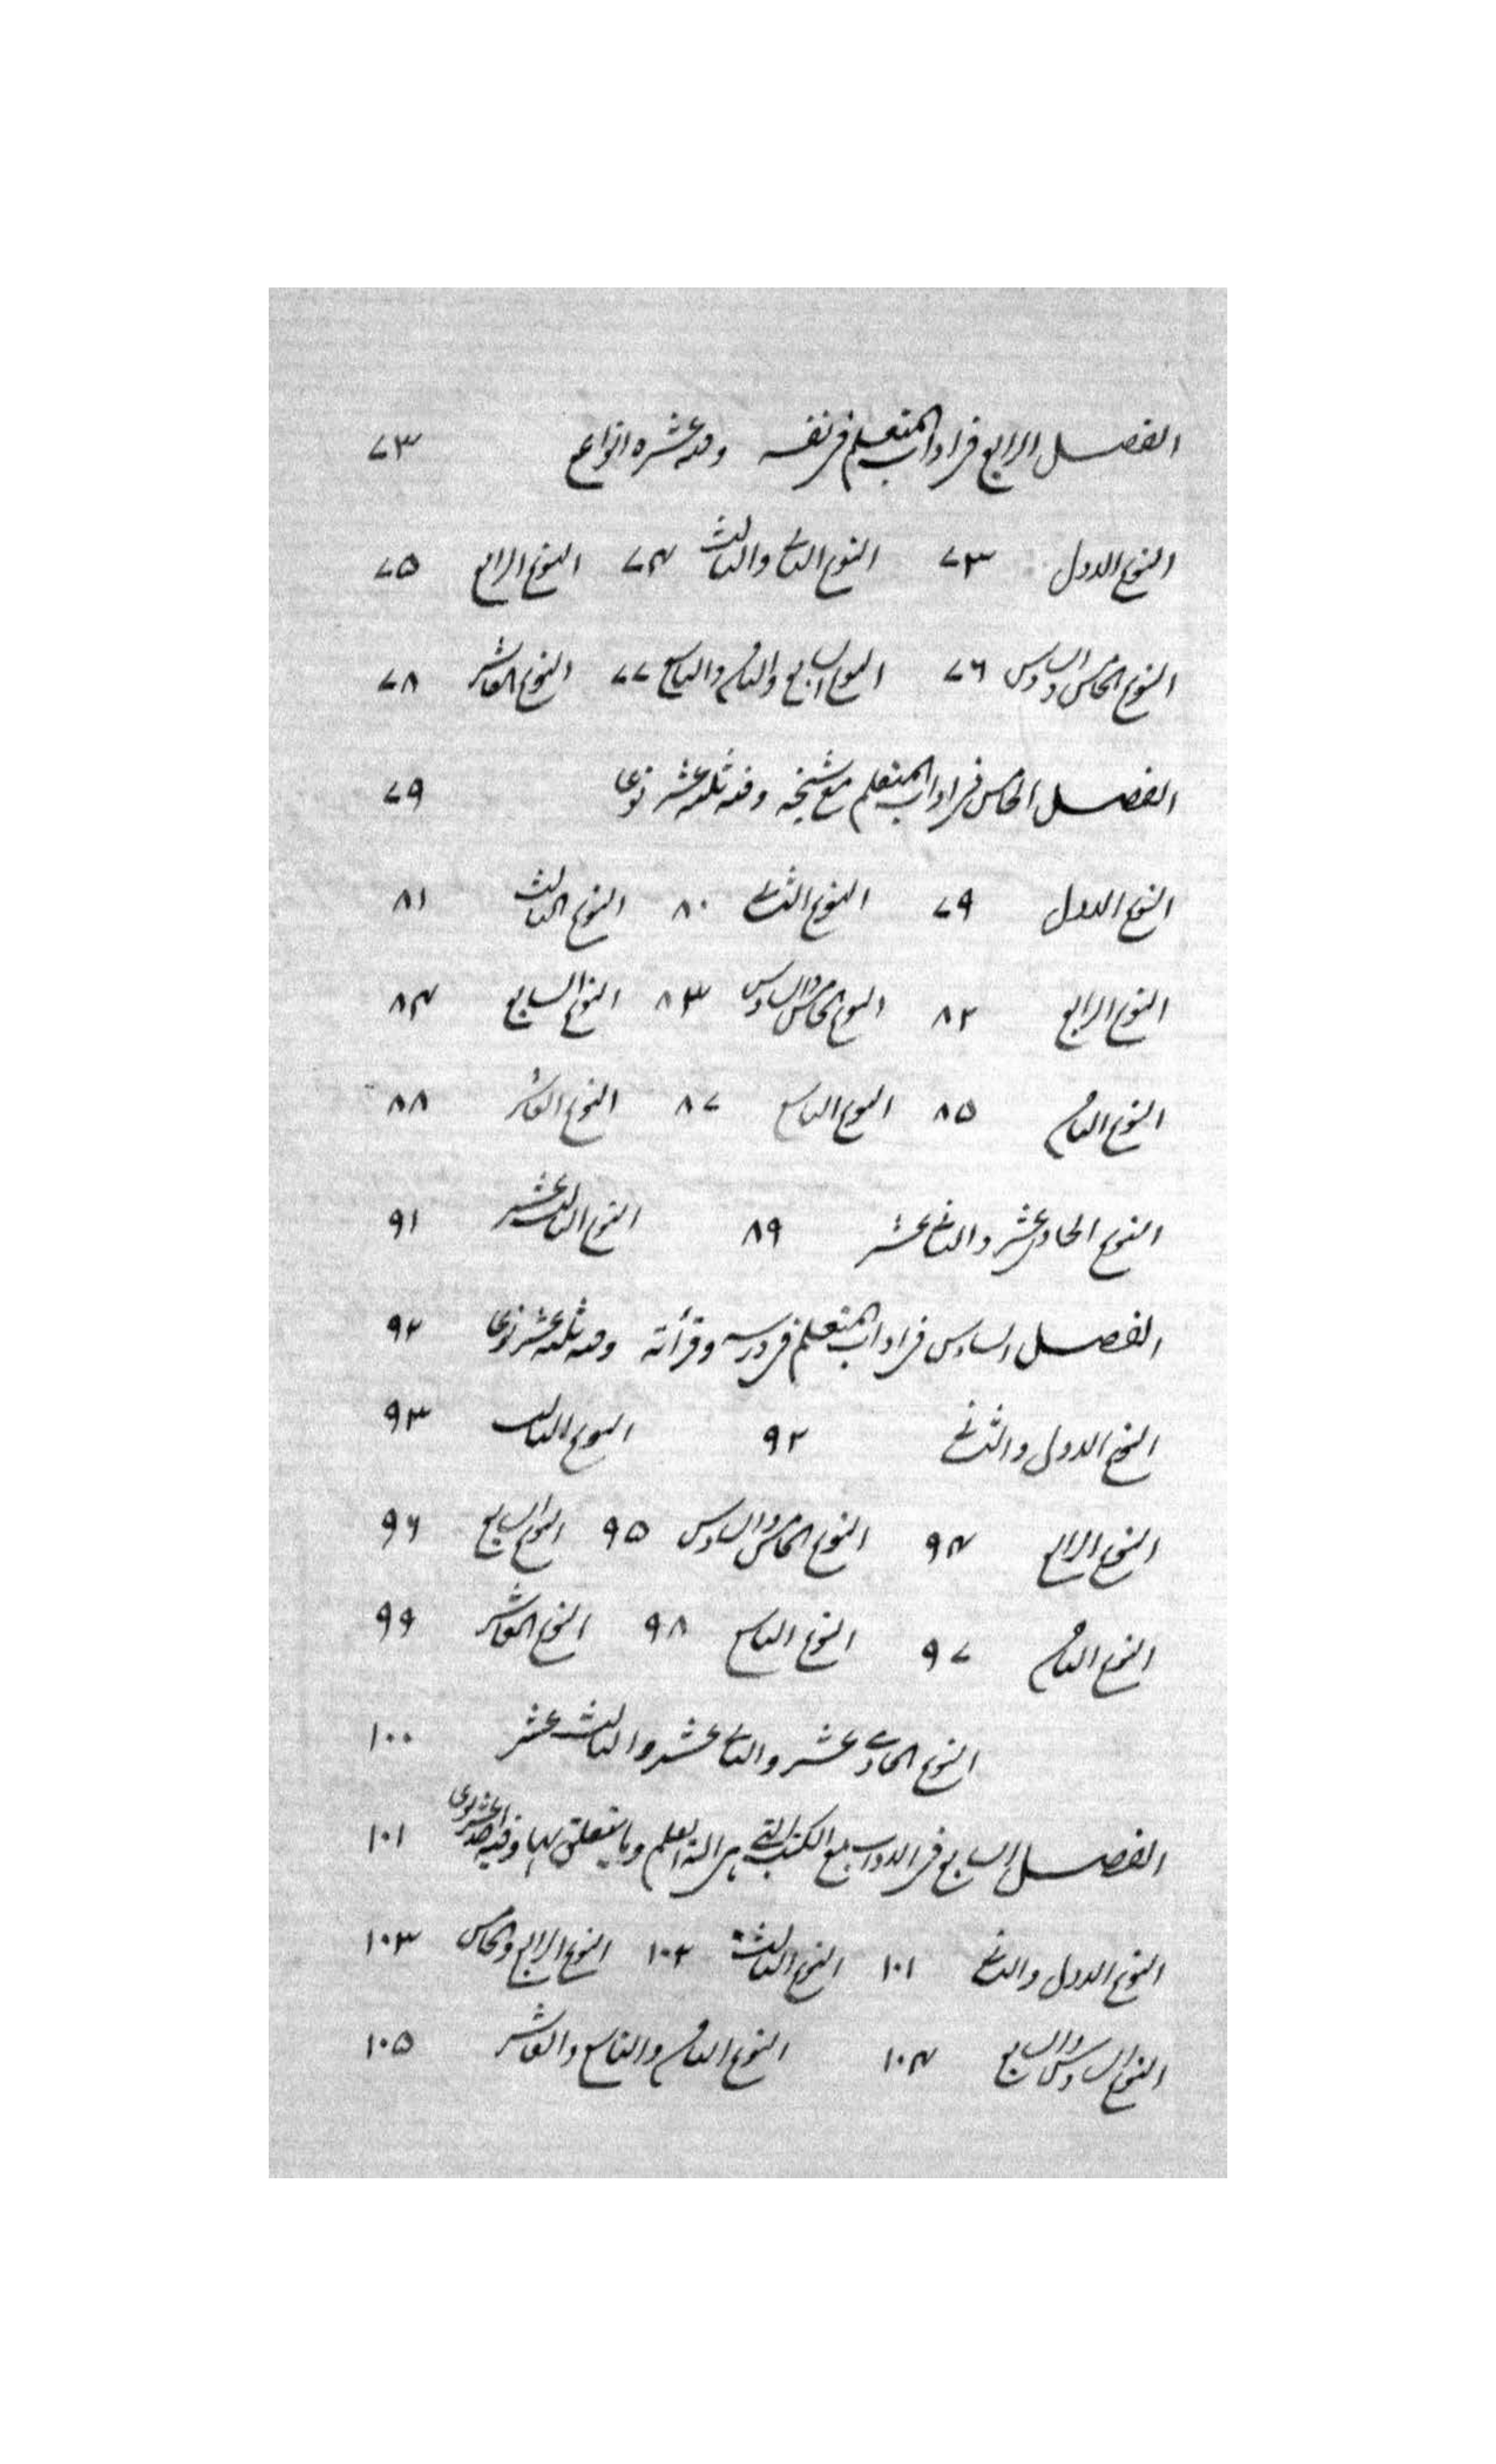 الفصل الرابع في اداب المتعلم في نفسه وفيه عشرة انواع ۷۳
النوع الاول ۷۳ النوع الثاني والثالث ۷۴ النوع الرابع ۷۵
النوع الخامس والسادس ۷۶ النوع السابع والثامن والتاسع ۷۷ النوع العاشر ۷۸
الفصل الخامس في اداب المتعلم مع شيخه وفيه ثلثة عشر نوعا ۷۹
النوع الاول ۷۹ النوع الثاني ۸۰ النوع الثالث ۸۱
النوع الرابع ۸۲ النوع الخامس والسادس ۸۳ النوع السابع ۸۴
النوع الثامن ۸۵ النوع التاسع ۸۷ النوع العاشر ۸۸
النوع الحادي عشر والثاني عشر ۸۹ النوع الثالث عشر ۹۱
الفصل السادس في اداب المتعلم في درسه وقرأته وفيه ثلثة عشر نوعا ۹۲
النوع الاول والثاني ۹۲ النوع الثالث ۹۳
النوع الرابع ۹۴ النوع الخامس والسادس ۹۵ النوع السابع ۹۶
النوع الثامن ۹۷ النوع التاسع ۹۸ النوع العاشر ۹۹
النوع الحادي عشر والثاني عشر والثالث عشر ۱۰۰
الفصل السابع في الاداب مع الكتب التي هي الة العلم وما يتعلق بها وفيه احد عشر نوعا ۱۰۱
النوع الاول والثاني ۱۰۱ النوع الثالث ۱۰۲ النوع الرابع والخامس ۱۰۳
النوع السادس والسابع ۱۰۴ النوع الثامن والتاسع والعاشر ۱۰۵